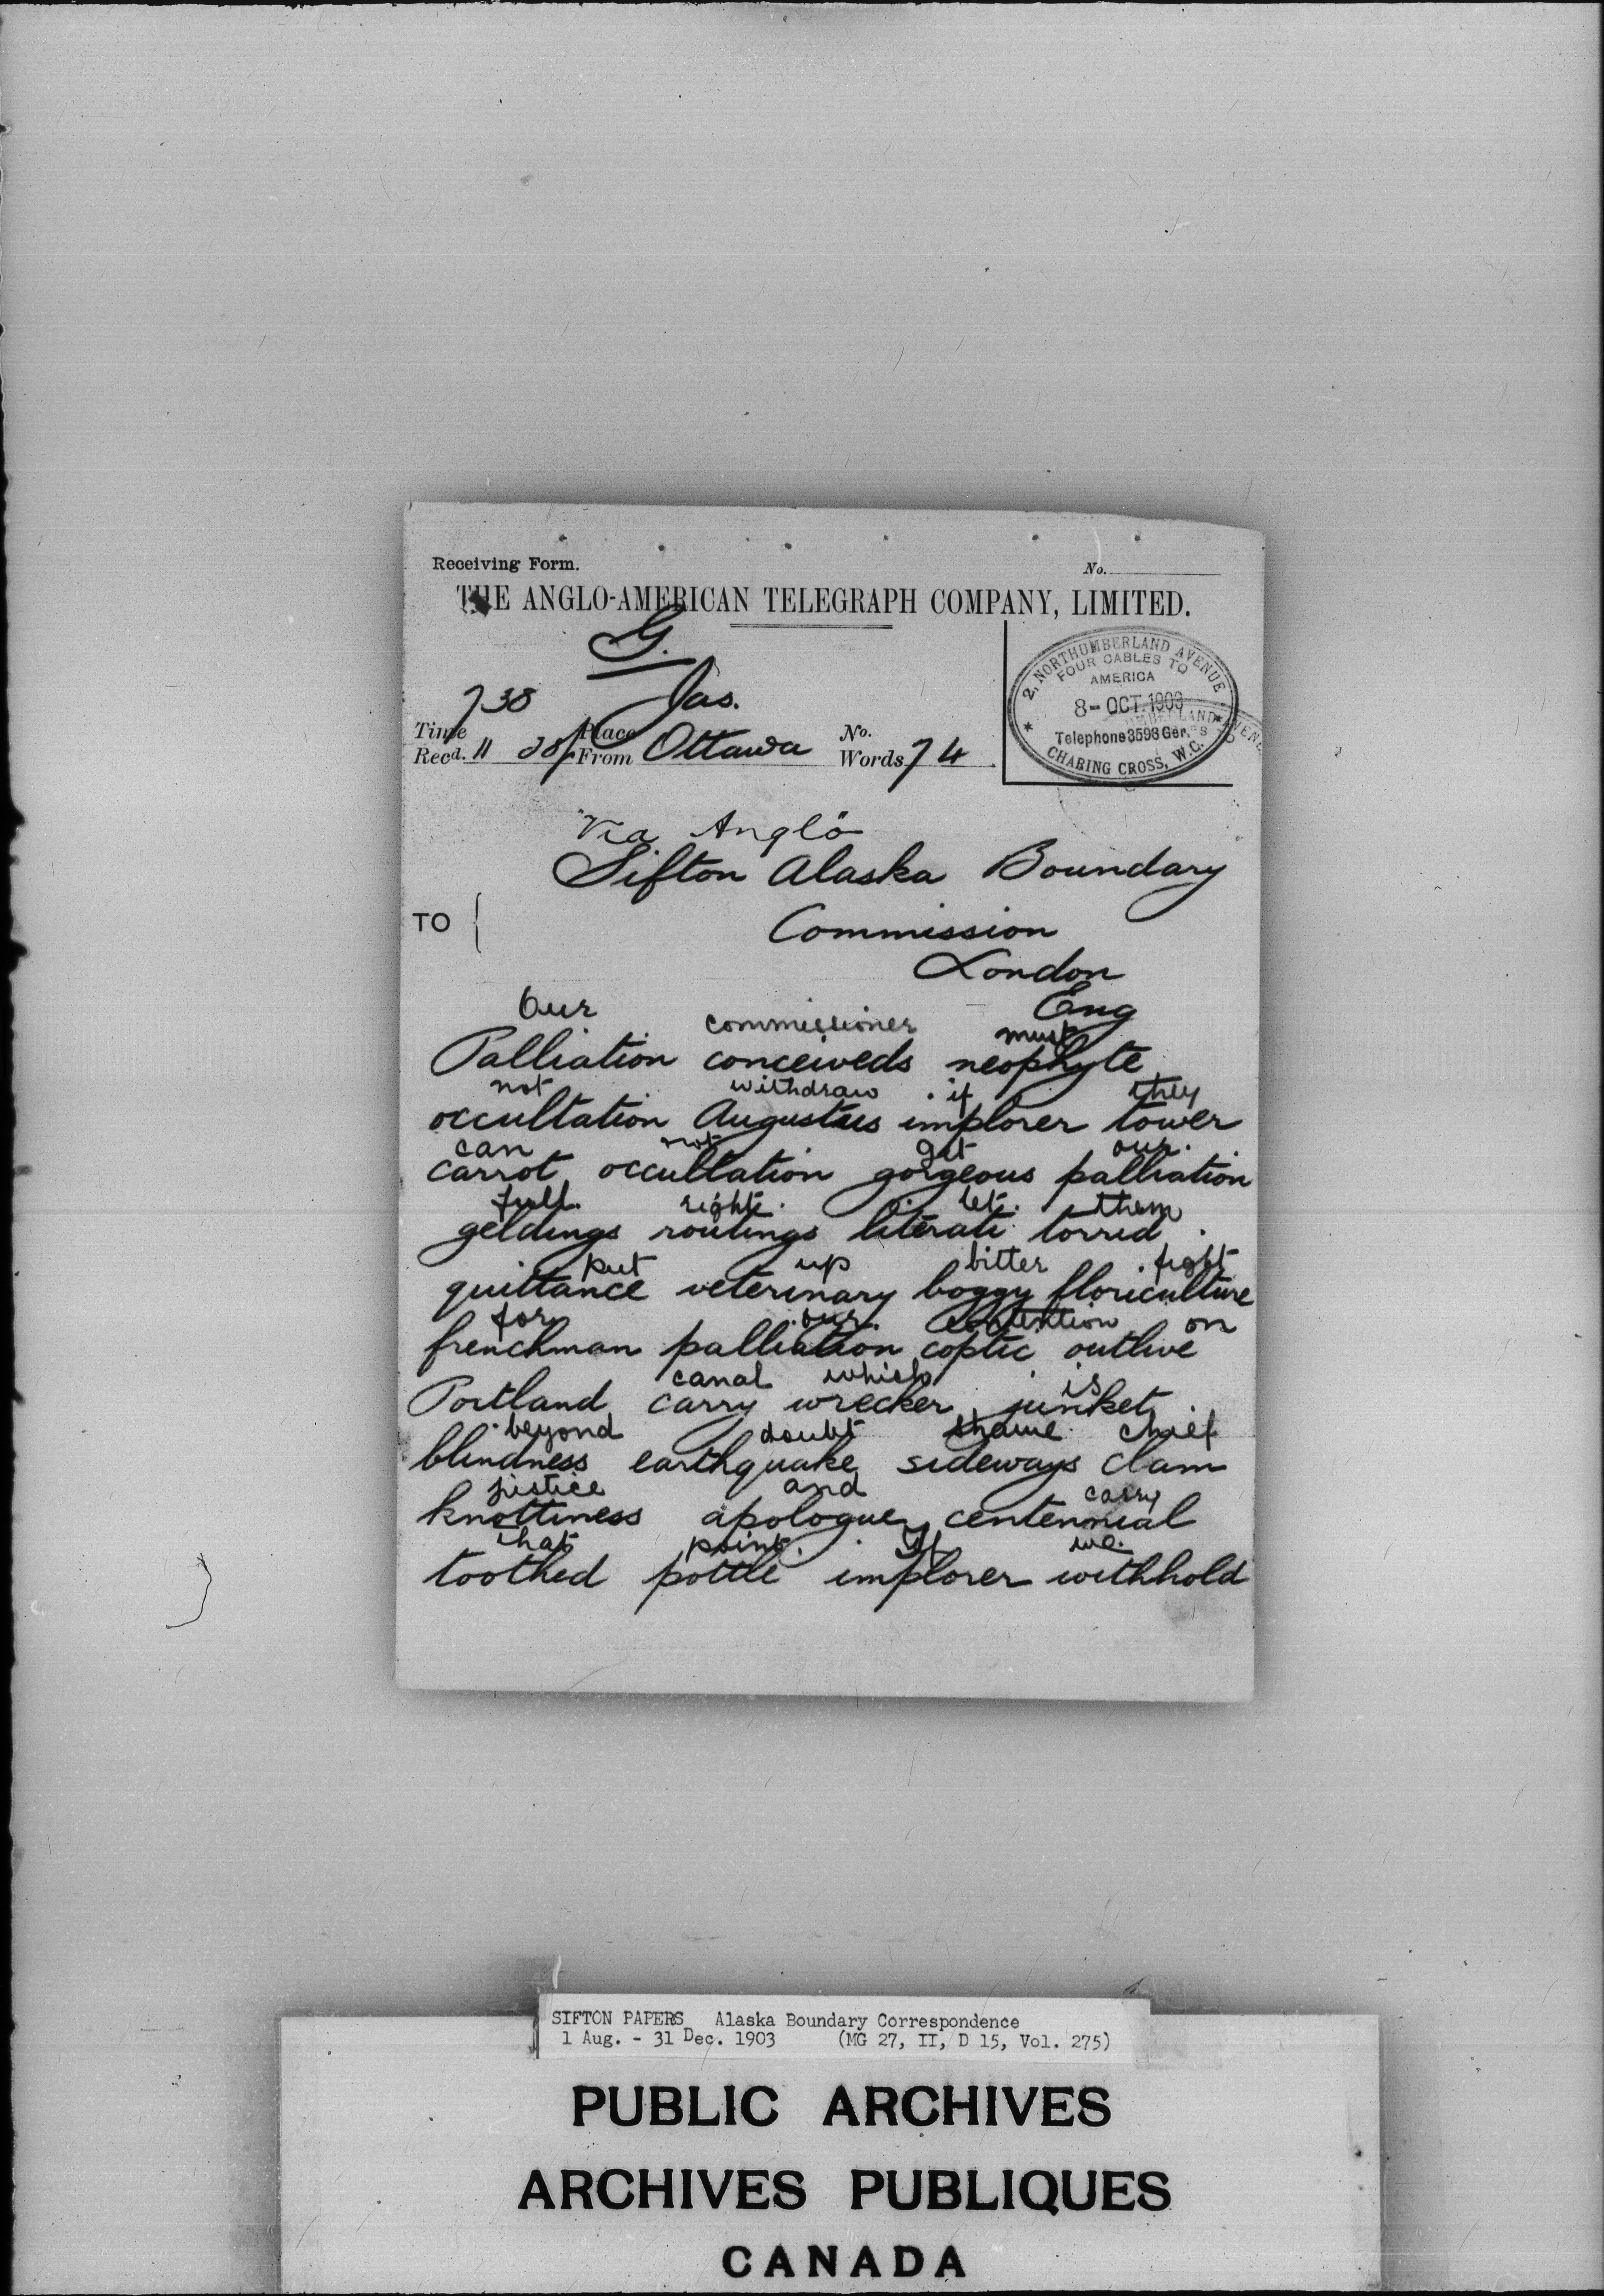 Receiving Form.
No.
THE ANGLO-AMERICAN TELEGRAPH COMPANY, LIMITED.
G.
738 Jas.
Time Recd. 11 38p Place From Ottawa No. Words 74
2, NORTHUMBERLAND AVENUE
FOUR CABLES TO
AMERICA
8-OCT.1903
Telephone 3598 Ger.
CHARING CROSS, W.C.
Via Anglo
Sifton Alaska Boundary
TO
Commission
London
Eng
Our commissioner must
Palliation conceiveds neophyte
not withdraw if they
occultation Augustus implorer tower
can not get our
carrot occultation gorgeous palliation
full right. let them
geldings routings literati torrid
put up bitter fight
quittance veterinary boggy floriculture
for our contention on
frenchman palliation coptic outlive
canal which is
Portland carry wrecker junket
beyond doubt shame chief
blindness earthquake sideways clam
justice and carry
knottiness apologue centennial
that point. If we
toothed pottle implorer withhold
SIFTON PAPERS Alaska Boundary Correspondence
1 Aug. - 31 Dec. 1903 (MG 27, II, D 15, Vol. 275)
PUBLIC ARCHIVES
ARCHIVES PUBLIQUES
CANADA